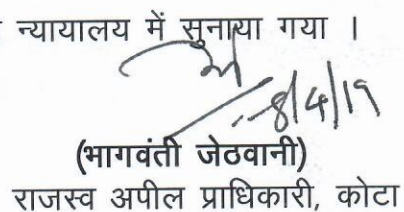 न्यायालय में सुनाया गया ।
8/4/19
(भागवंती जेठवानी)
राजस्व अपील प्राधिकारी, कोटा